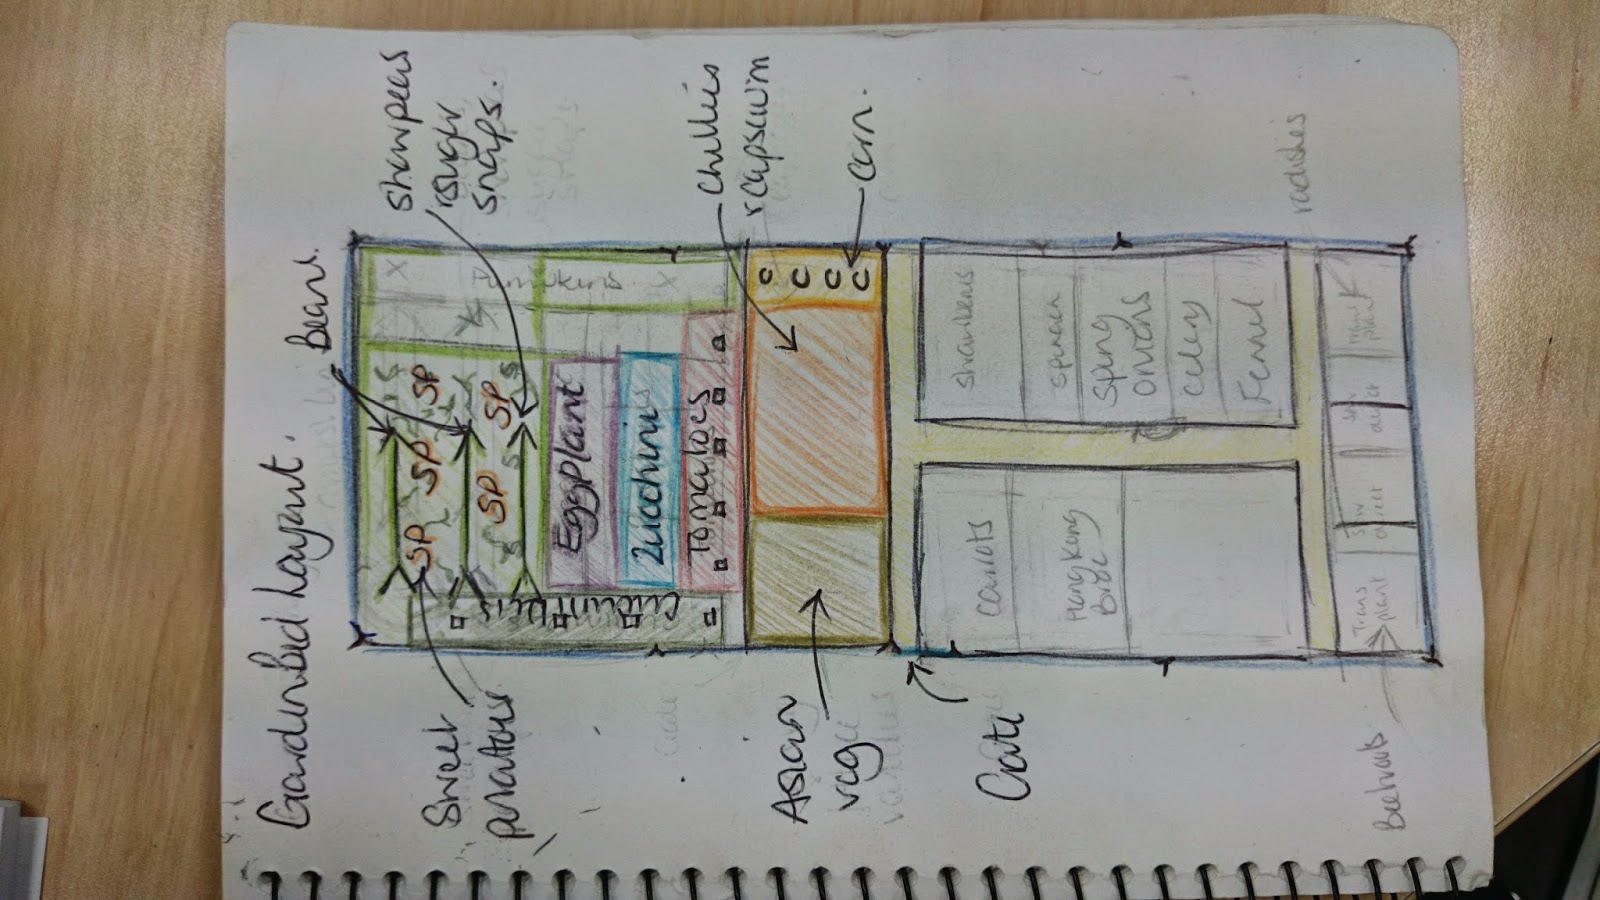 Garden Bed Layout.
Beans.
snowpeas
sugar
snaps.
chillies
capsicum
corn.
radishes
Pumpkins
X
X
SP
SP
SP
SP
SP
SP
Eggplant
Zucchinis
Tomatoes
Cucumbers
C
C
C
C
strawberries
spinach
Spring
Onions
Celery
Fennel
carrots
Hong Kong
Trans
plant
Sweet
potatoes
Asian
veg
Gate
Beetroots